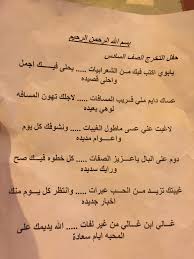 بسم الله الرحمن الرحيم
حفل التخرج الصف السادس
يابوي اكتب فيك من الشعرابيات ..... بحلى فيك اجمل
واحلى قصيده
عساك دايم ملي قريب المسافات ..... لاجلك تهون المسافه
لوهي بعيده
لاغبت علي عسى ماطول الغيبات ..... ونشوفك كل يوم
واعوام مديده
دوم على البال ياعزيز الصفات ..... كل خطوه فيك صح
ورايك سديده
غيبتك تزيد من الحسب عبرات ..... وانتظر كل يوم منك
اخبار جديده
غالي ابن غالي من غير لفات ..... الله يديمك على
المحبه ايام سعادة